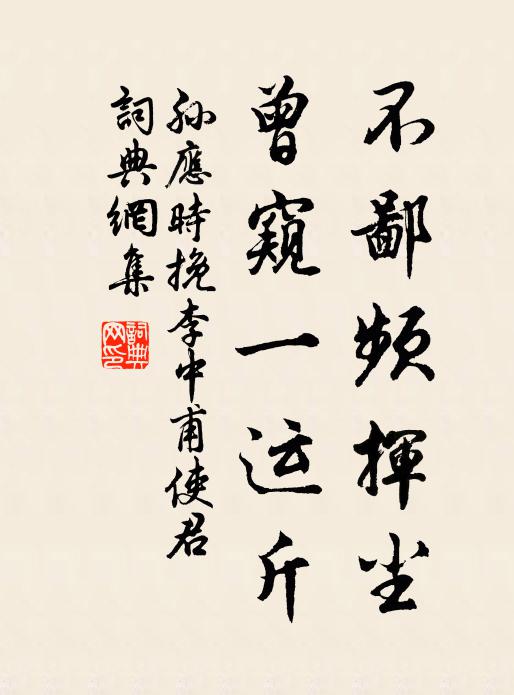 不鄙頻揮尘
曾窺一运斤
孫應時挽李中甫使君
詞典網集
詞典網印